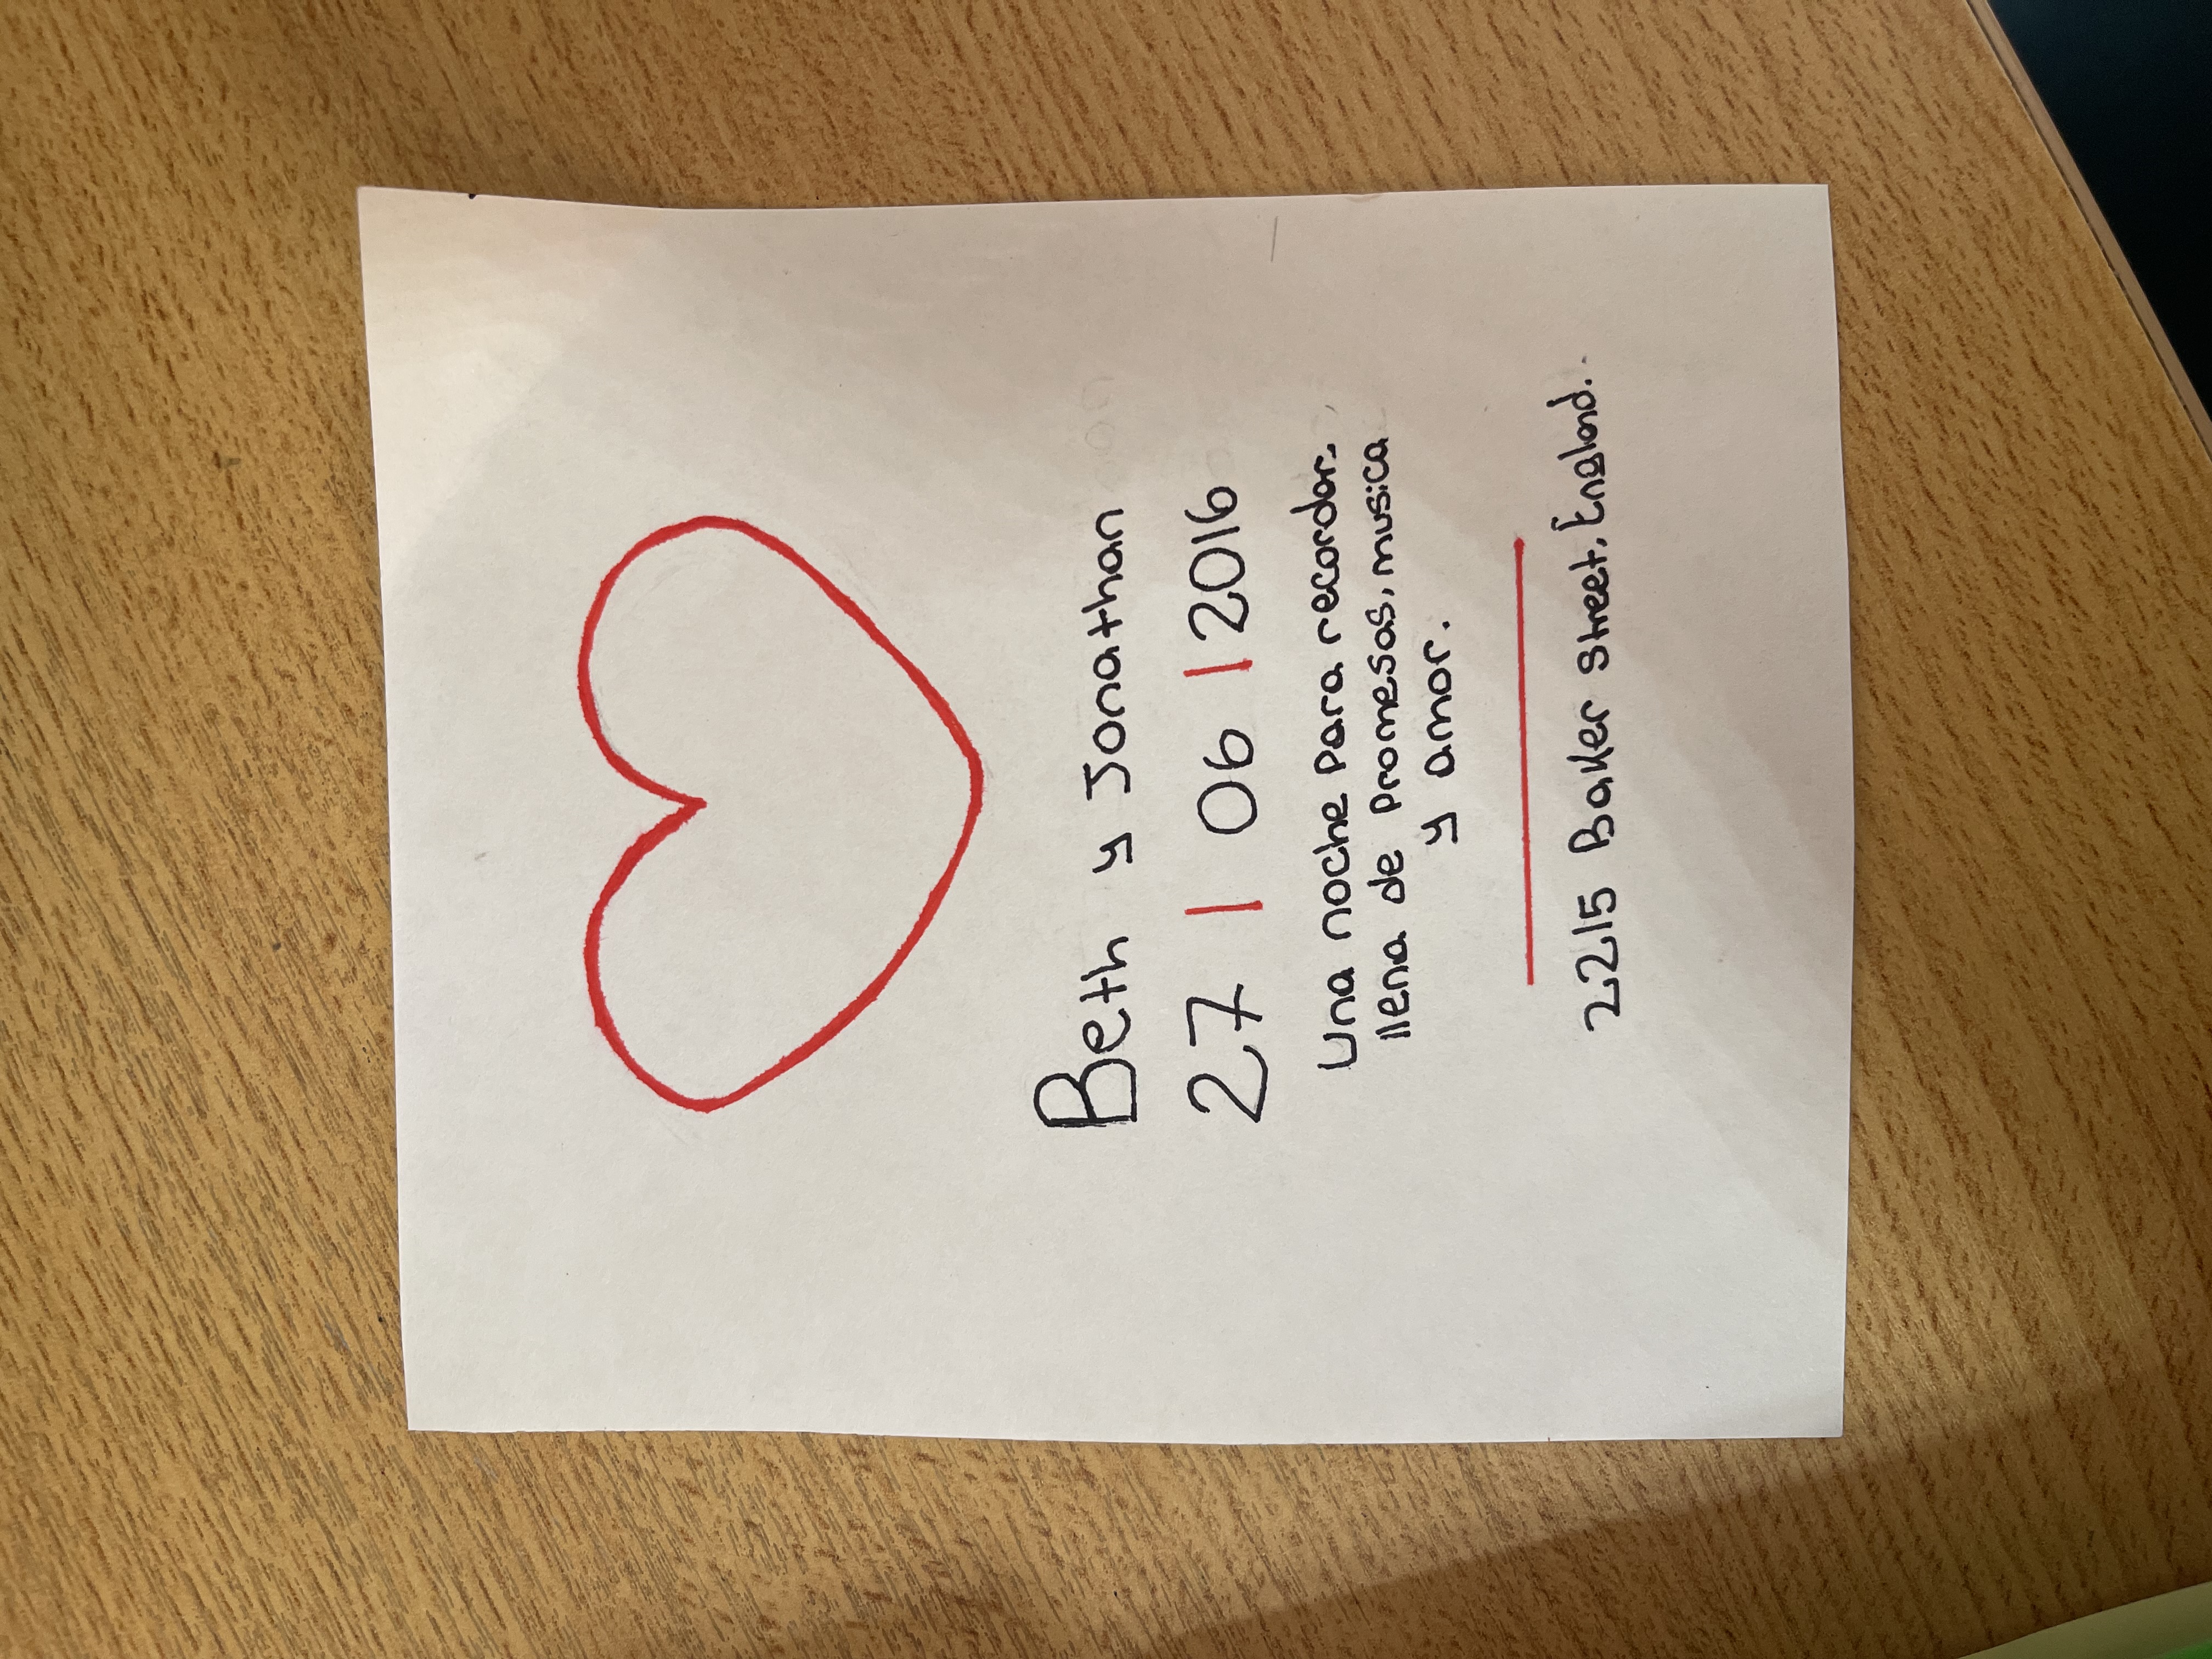 Beth y Jonathan
27 | 06 | 2016
Una noche para recordar.
llena de promesas, musica
y amor.
2215 Baker street, England.